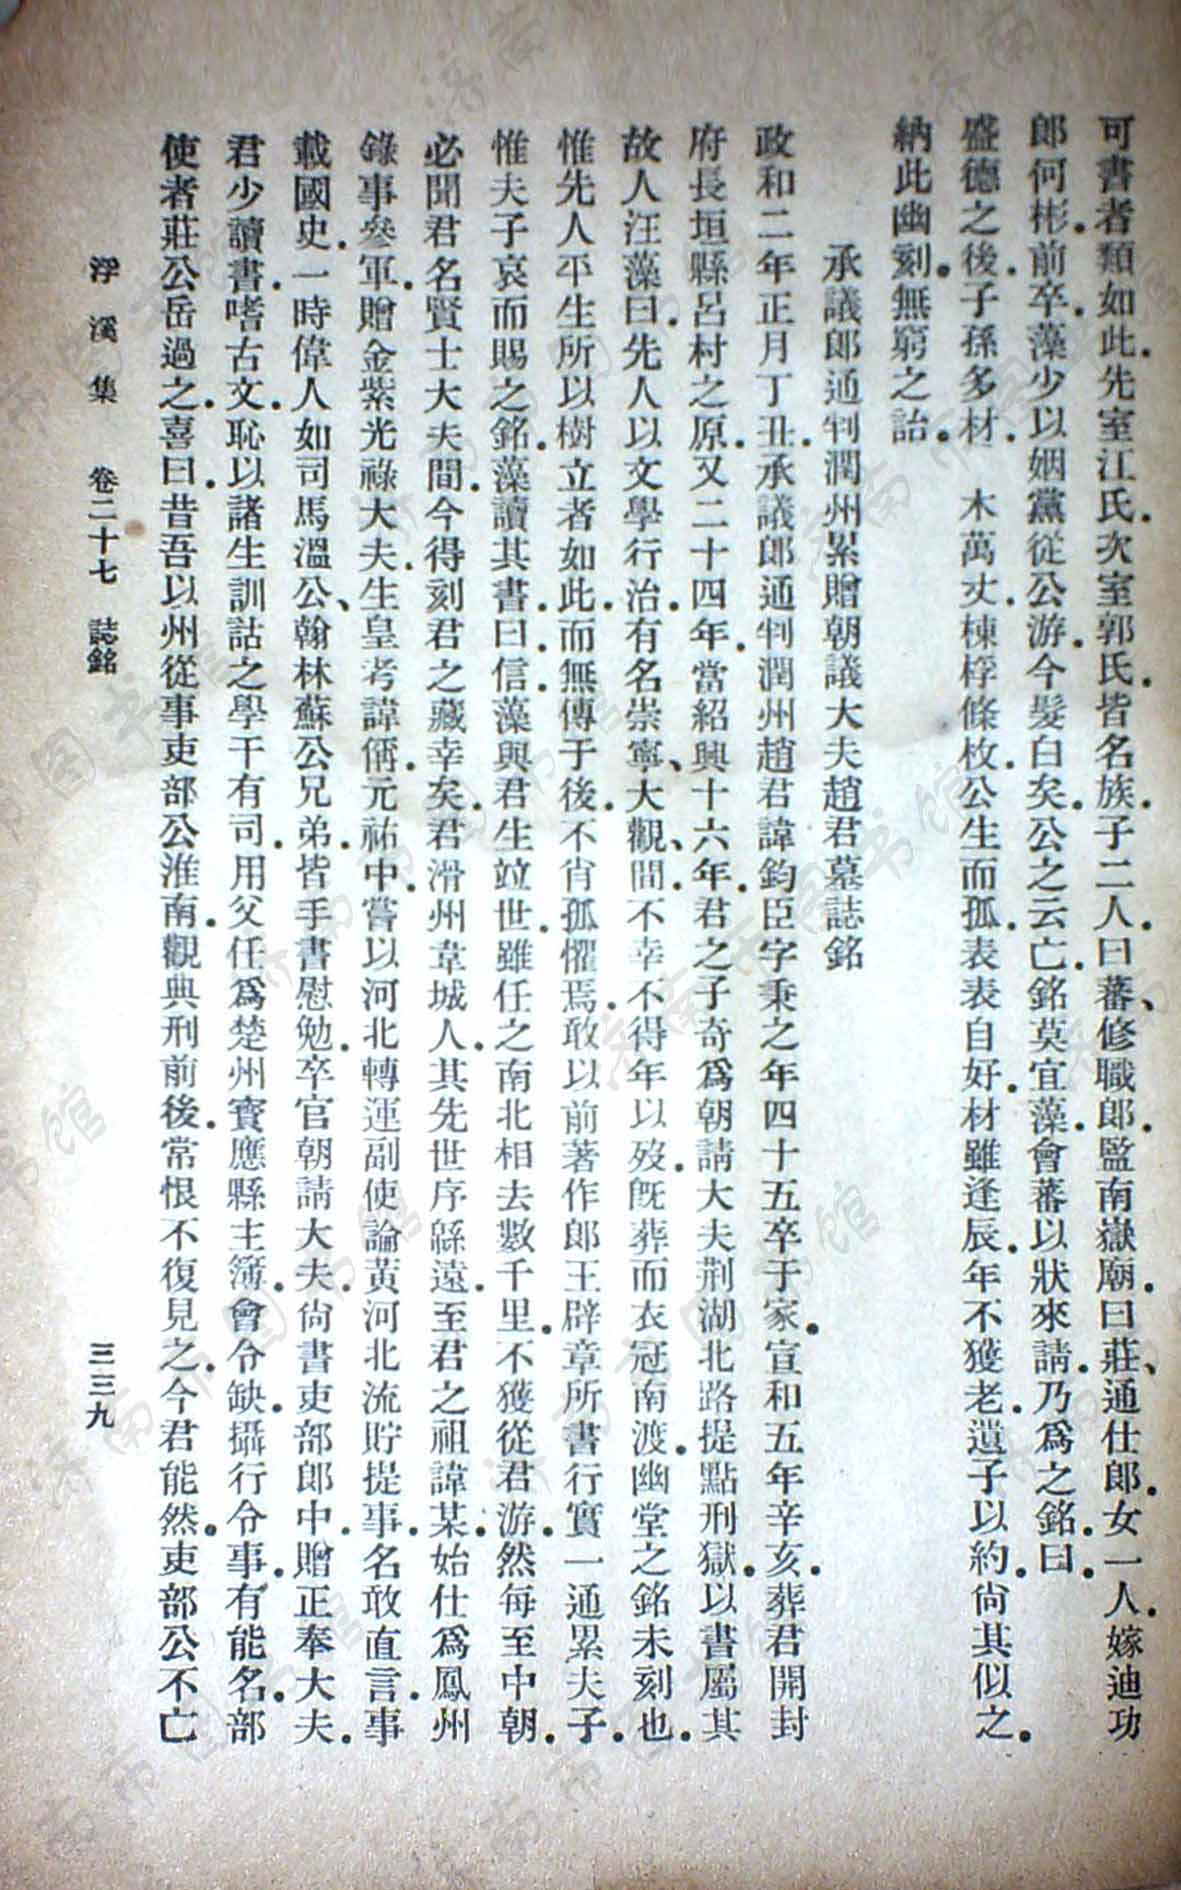 可書者類如此.先室江氏.次室郭氏.皆名族.子二人.曰蕃、修職郎.監南嶽廟.曰莊、通仕郎.女一人.嫁迪功
郎何彬.前卒.藻少以姻黨從公游.今髮白矣.公之云亡.銘莫宜藻.會蕃以狀來請.乃爲之銘.曰.
盛德之後.子孫多材.木萬丈.棟桴條枚.公生而孤.表表自好.材雖逢辰.年不獲老.遺子以約.尙其似之.
納此幽刻.無窮之詒.
承議郎通判潤州累贈朝議大夫趙君墓誌銘
政和二年正月丁丑.承議郎通判潤州趙君諱鈞臣字秉之年四十五卒于家.宣和五年辛亥.葬君開封
府長垣縣呂村之原.又二十四年.當紹興十六年.君之子奇爲朝請大夫荆湖北路提點刑獄.以書屬其
故人汪藻曰.先人以文學行治.有名崇寧、大觀間.不幸不得年以歿.旣葬而衣冠南渡.幽堂之銘未刻也.
惟先人平生所以樹立者如此.而無傳于後.不肖孤懼焉.敢以前著作郎王辟章所書行實一通累夫子.
惟夫子哀而賜之銘.藻讀其書.曰.信.藻與君生竝世.雖任之南北相去數千里.不獲從君游.然每至中朝.
必聞君名賢士大夫間.今得刻君之藏.幸矣.君滑州韋城人.其先世序緜遠.至君之祖諱某.始仕爲鳳州
錄事參軍.贈金紫光祿大夫.生皇考諱偁.元祐中.嘗以河北轉運副使論黃河北流貯提事.名敢直言.事
載國史.一時偉人如司馬溫公、翰林蘇公兄弟.皆手書慰勉.卒官朝請大夫.尙書吏部郎中.贈正奉大夫.
君少讀書.嗜古文.恥以諸生訓詁之學干有司.用父任爲楚州寶應縣主簿.會令缺.攝行令事.有能名.部
使者莊公岳過之.喜曰.昔吾以州從事吏部公淮南.觀典刑前後.常恨不復見之.今君能然.吏部公不亡
浮溪集 卷二十七 誌銘 三三九